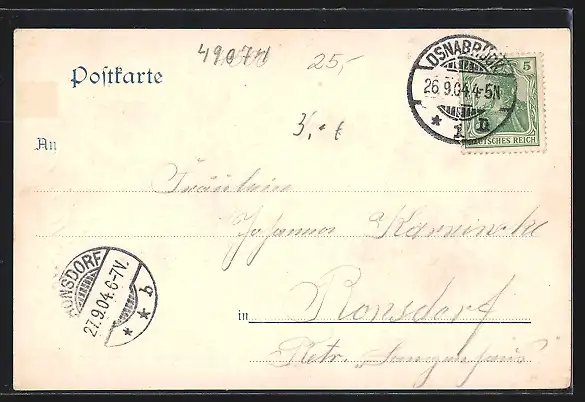 49071
25,-
Postkarte
OSNABRÜCK
26.9.04.4-5N
* 1 n
5
DEUTSCHES REICH
An
Fräulein
Johanna
RONSDORF
27.9.04.6-7V.
* * b
in Ronsdorf